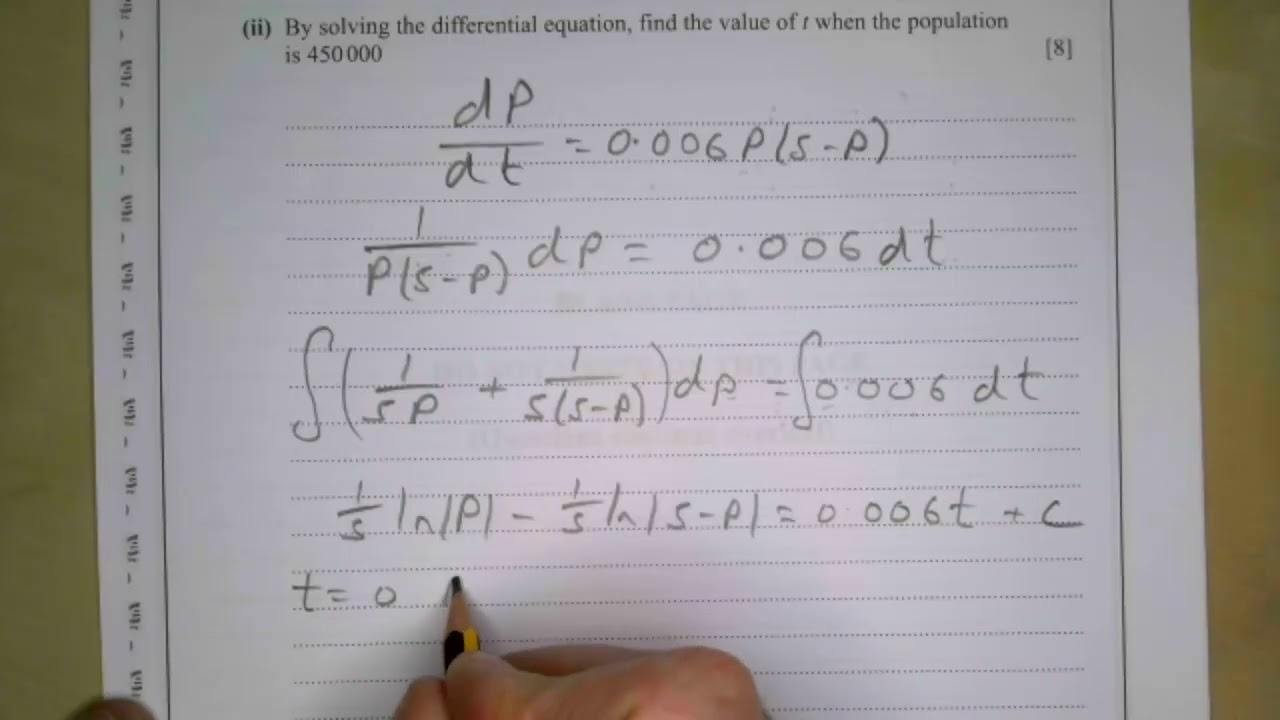 (ii) By solving the differential equation, find the value of t when the population
is 450 000
[8]
dP/dt = 0.006 P(5-P)
1/P(5-P) dP = 0.006 dt
∫(1/5P + 1/5(5-P))dP = ∫0.006 dt
1/5 ln|P| - 1/5 ln|5-P| = 0.006t + C
t = 0